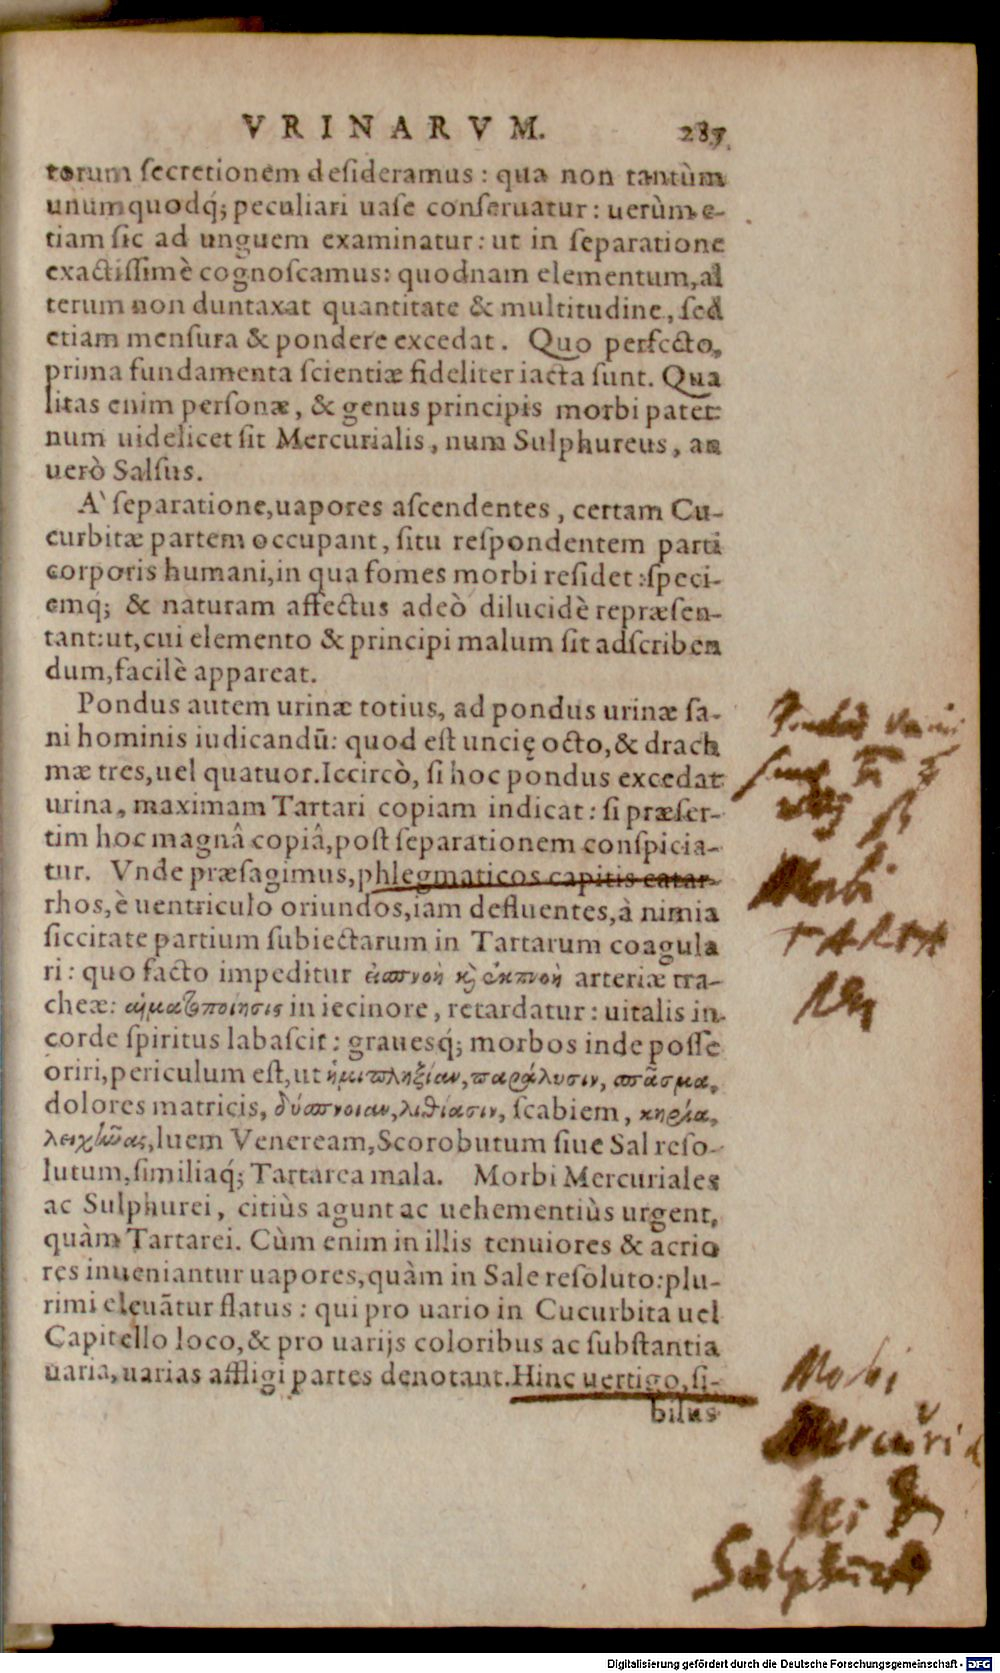 VRINARVM. 287
torum ſecretionem deſideramus: qua non tantùm
unumquodq́; peculiari uaſe conſeruatur: uerùm e-
tiam ſic ad unguem examinatur: ut in ſeparatione
exactiſſimè cognoſcamus: quodnam elementum, al
terum non duntaxat quantitate & multitudine, ſed
etiam menſura & pondere excedat. Quo perfecto,
prima fundamenta ſcientiæ fideliter iacta ſunt. Qua
litas enim perſonæ, & genus principis morbi patet:
num uidelicet ſit Mercurialis, num Sulphureus, an
uerò Salſus.
A` ſeparatione, uapores aſcendentes, certam Cu-
curbitæ partem occupant, ſitu reſpondentem parti
corporis humani, in qua fomes morbi reſidet: ſpeci-
emq́; & naturam affectus adeò dilucidè repræſen-
tant: ut, cui elemento & principi malum ſit adſcriben
dum, facilè appareat.
Pondus autem urinæ totius, ad pondus urinæ ſa-
ni hominis iudicandū: quod eſt uncię octo, & drach
mæ tres, uel quatuor. Iccircò, ſi hoc pondus excedat
urina, maximam Tartari copiam indicat: ſi præſer-
tim hoc magnâ copiâ, poſt ſeparationem conſpicia-
tur. Vnde præſagimus, phlegmaticos capitis catar-
rhos, è uentriculo oriundos, iam defluentes, à nimia
ſiccitate partium ſubiectarum in Tartarum coagula
ri: quo facto impeditur εἰσπνοὴ κὶ ἐκπνοὴ arteriæ tra-
cheæ: αἱματοποίησις in iecinore, retardatur: uitalis in
corde ſpiritus labaſcit: graueſq́; morbos inde poſſe
oriri, periculum eſt, ut ἡμιπληξίαν, παράλυσιν, σπᾶσμα,
dolores matricis, δύσπνοιαν, λιθίασιν, ſcabiem, κηρία,
λειχῆνας, luem Veneream, Scorobutum ſiue Sal reſo-
lutum, ſimiliaq́; Tartarea mala. Morbi Mercuriales
ac Sulphurei, citiùs agunt ac uehementiùs urgent,
quàm Tartarei. Cùm enim in illis tenuiores & acrio
res inueniantur uapores, quàm in Sale reſoluto: plu-
rimi eleuātur flatus: qui pro uario in Cucurbita uel
Capitello loco, & pro uarijs coloribus ac ſubſtantia
uaria, uarias affligi partes denotant. Hinc uertigo, ſi-
bilus
Pondus
Morbi
TARTA
rei
Morbi
Mercuria
les &
Sulphurei
Digitalisierung gefördert durch die Deutsche Forschungsgemeinschaft - DFG